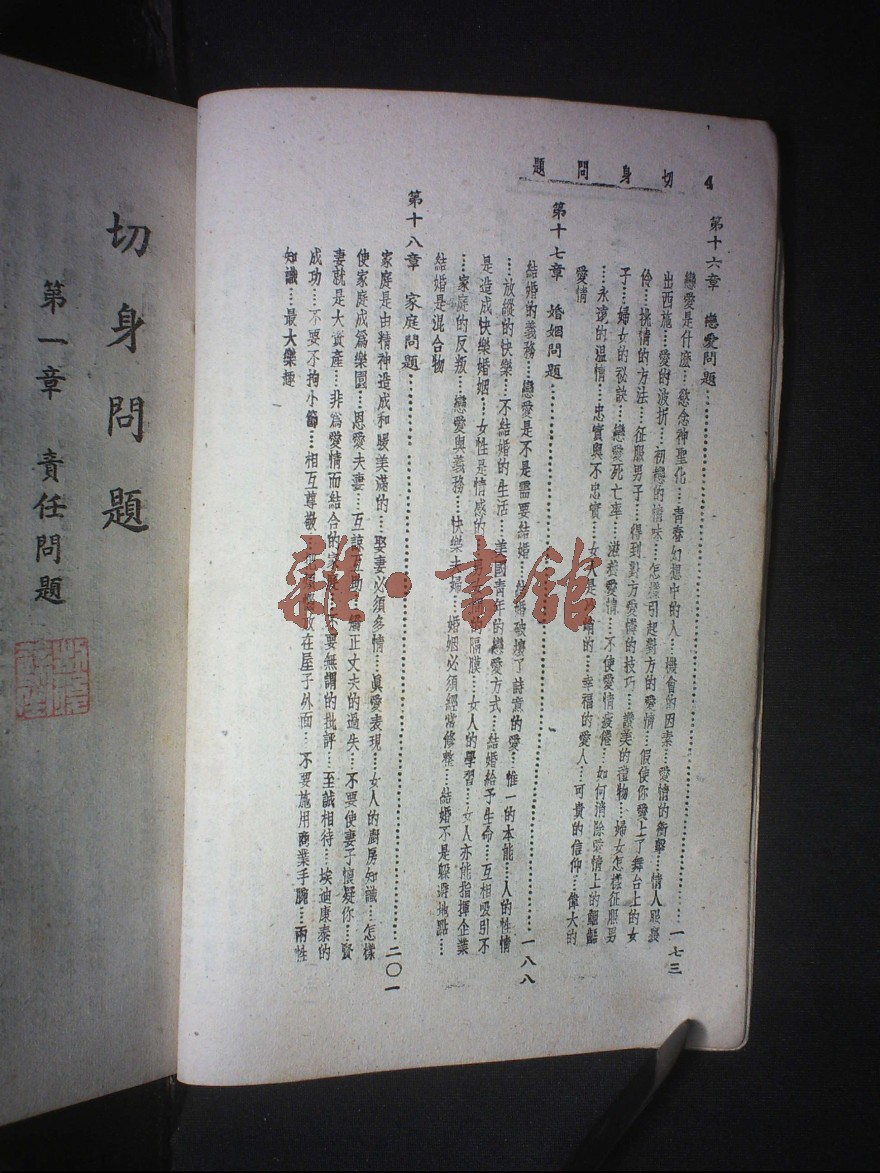 4 切身問題
第十六章 戀愛問題……一七三
戀愛是什麼…慾念神聖化…青春幻想中的人…機會的因素…愛情的衝擊…情人眼裏
出西施…愛的波折…初戀的情味…怎樣引起對方的愛情…假使你愛上了舞台上的女
伶…挑情的方法…征服男子…得到對方愛憐的技巧…讚美的禮物…婦女怎樣征服男
子…婦女的秘訣…戀愛死亡率…滋養愛情…不使愛情疲倦…如何消除愛情上的齟齬
…永遠的溫情…忠實與不忠實…女人是…的…幸福的愛人…可貴的信仰…偉大的
愛情
第十七章 婚姻問題……一八八
結婚的義務…戀愛是不是需要結婚…結婚破壞了詩意的愛…惟一的本能…人的性情
…放縱的快樂…不結婚的生活…美國青年的戀愛方式…結婚給予生命…互相吸引不
是造成快樂婚姻…女性是情感的…男…的隔膜…女人的學習…女人亦能指揮企業
…家庭的反叛…戀愛與義務…快樂夫婦…婚姻必須經常修整…結婚不是躲避地點…
結婚是混合物
第十八章 家庭問題……二〇一
家庭是由精神造成和暖美滿的…娶妻必須多情…眞愛表現…女人的廚房知識…怎樣
使家庭成爲樂園…恩愛夫妻…互諒互助…矯正丈夫的過失…不要使妻子懷疑你…賢
妻就是大資產…非爲愛情而結合的家庭…不要無謂的批評…至誠相待…埃迪康泰的
成功…不要不拘小節…相互尊敬…放在屋子外面…不要施用商業手腕…兩性
知識…最大樂趣
切身問題
第一章 責任問題
雜·書館